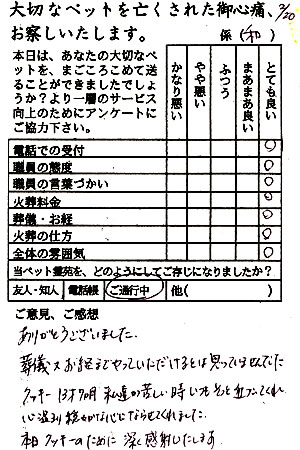 大切なペットを亡くされた御心痛、
お察しいたします。
9/20
係（和）
本日は、あなたの大切なペ
ットを、まごころこめて送
ることができましたでしょ
うか？より一層のサービス
向上のためにアンケートに
ご協力下さい。
かなり悪い
やや悪い
ふつう
まあまあ良い
とても良い
電話での受付 ○
職員の態度 ○
職員の言葉づかい ○
火葬料金 ○
葬儀・お経 ○
火葬の仕方 ○
全体の雰囲気 ○
当ペット霊苑を、どのようにしてご存じになりましたか？
友人・知人 電話帳 ご通行中 他（
ご意見、ご感想
ありがとうございました。
葬儀、お経までやっていただけるとは思っていませんでした
クッキー 13才7ヶ月 私達が苦しい時いつも
心
くれました。
本日クッキーのために 深く感謝したします